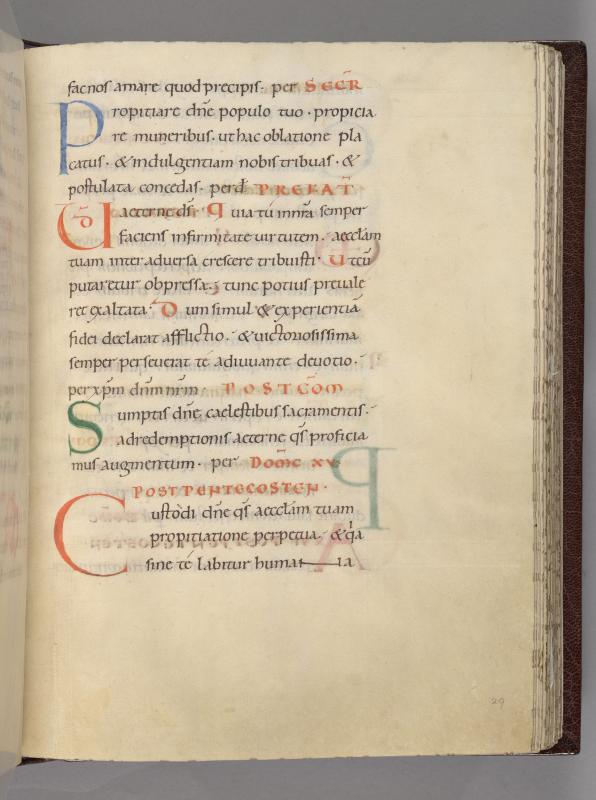 fac nos amare quod precipis· per SECR̄
Propitiare dn̄e populo tuo · propicia
re muneribus · ut hac oblatione pla
catus · & indulgentiam nobis tribuas · &
postulata concedas · per d̄ PREFAT̄
UD̄ aeterne d̄s · Quia tu in nr̄a semper
faciens infirmitate uirtutem · aecclam̄
tuam inter aduersa crescere tribuisti · Ut cū
putaretur obpressa ; tunc potius preuale
ret exaltata · Dum simul & experientiā
fidei declarat afflictio · & uictoriosissima
semper perseuerat te adiuuante deuotio ·
per xp̄m dn̄m nr̄m · POSTCOM̄
Sumptis dn̄e caelestibus sacramentis ·
ad redemptionis aeterne q̄s proficia
mus augmentum · per DOM̄C XV
POST PENTECOSTEN ·
Custodi dn̄e q̄s aecclām tuam
propitiatione perpetua · & q̄a
sine te labitur humana
29